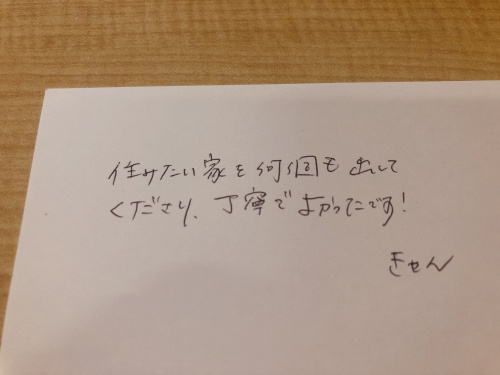 住みたい家を何個も出して
くださり、丁寧でよかったです!
きせん